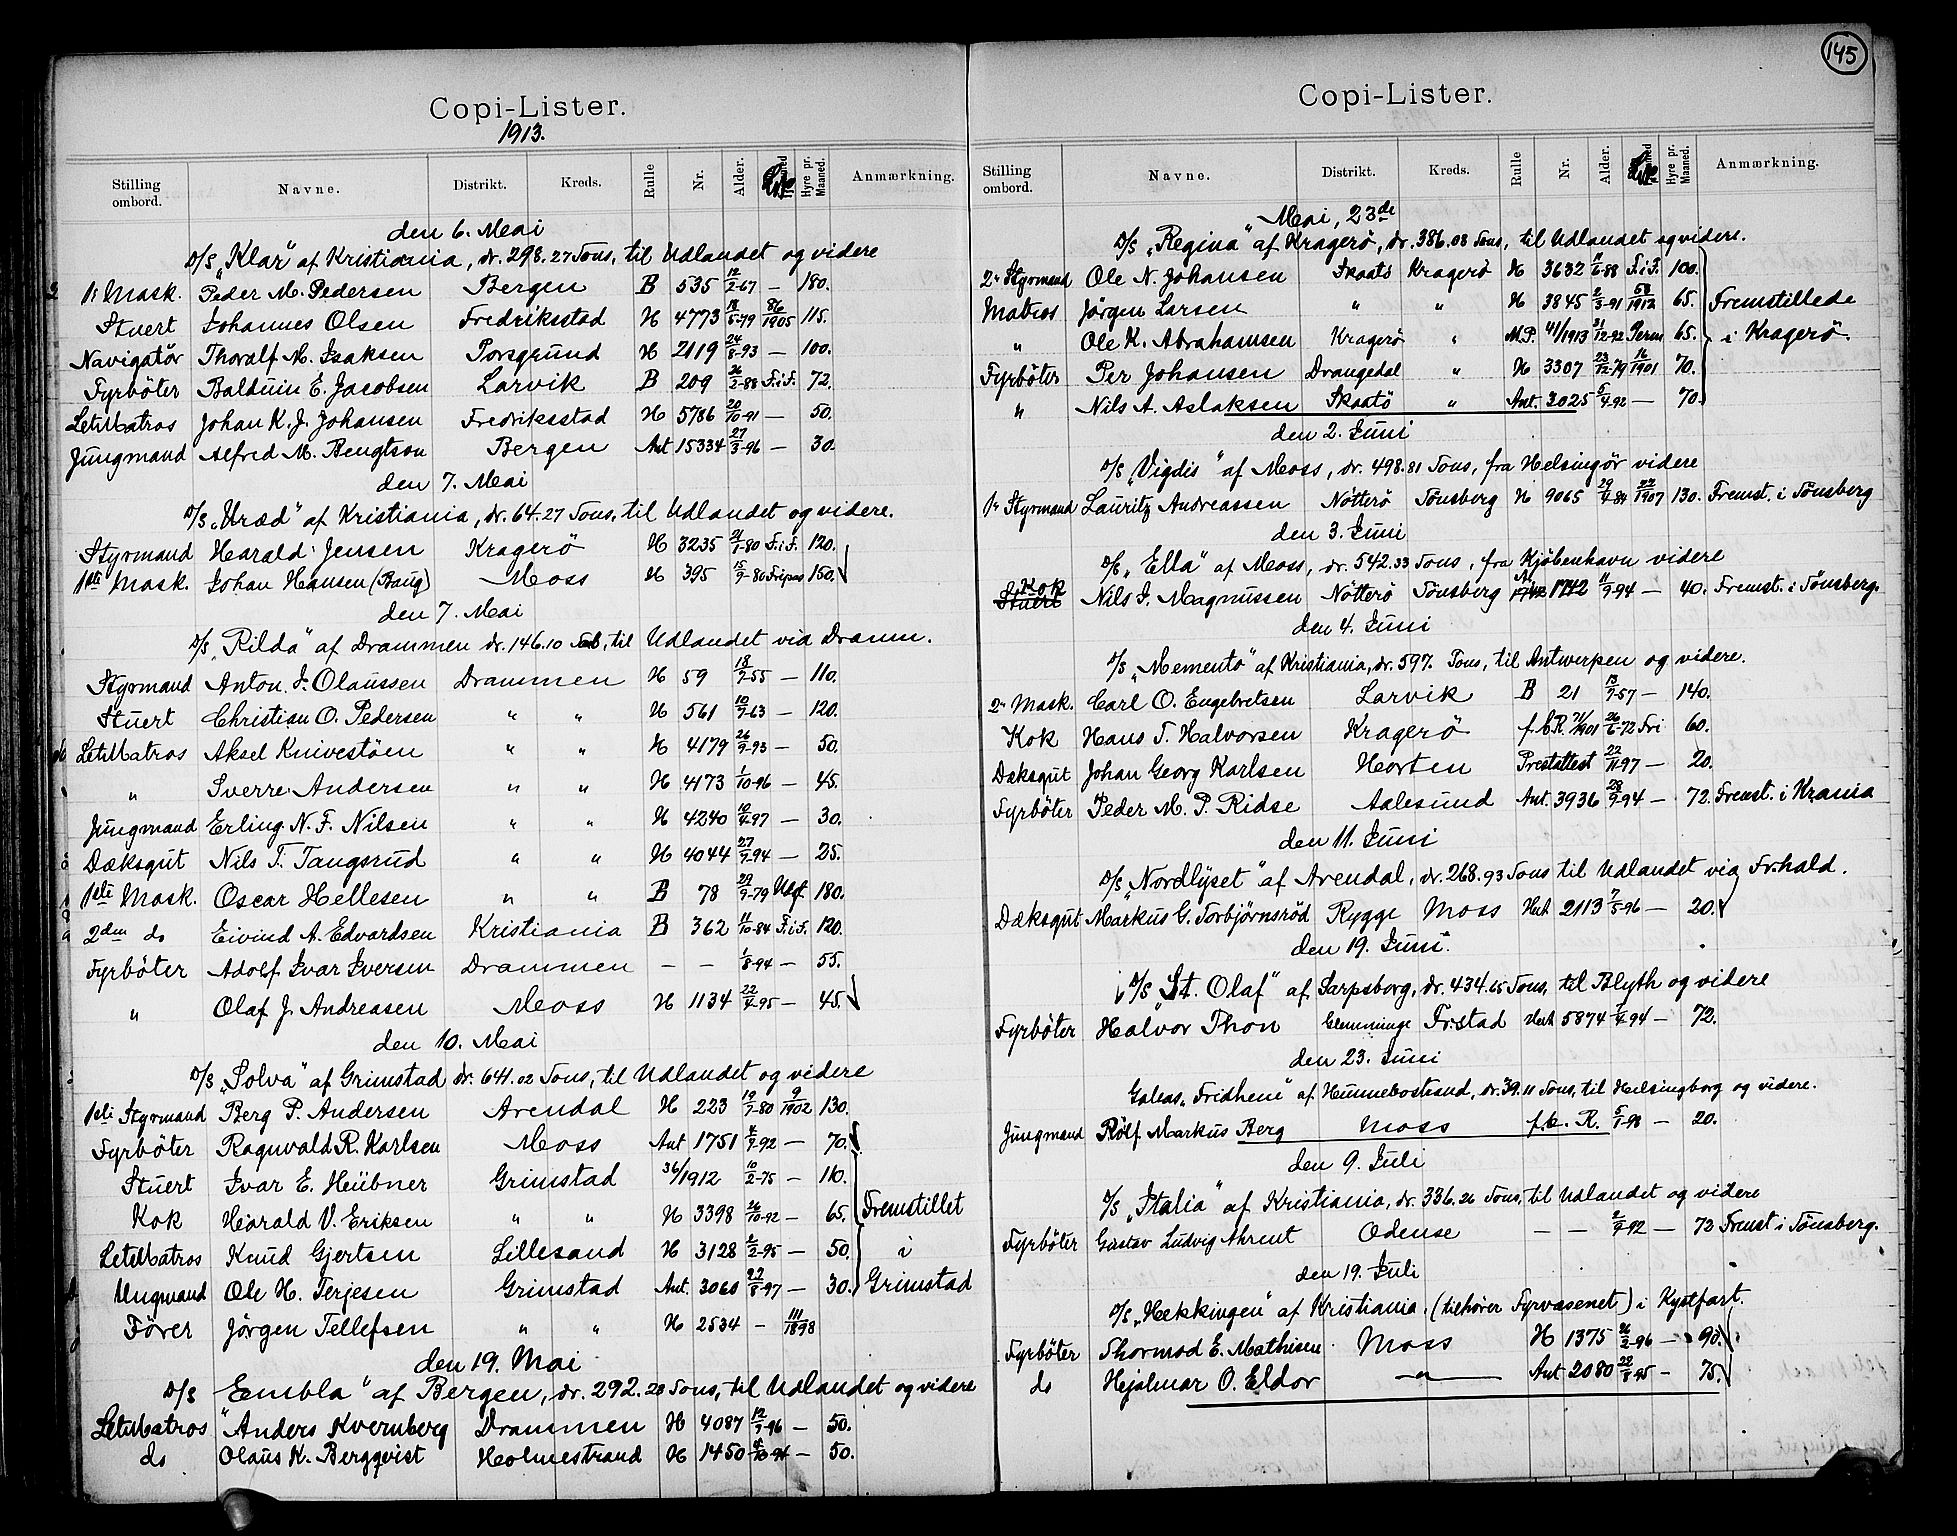 Copi-Lister.
1913.
Stilling ombord. Navne. Distrikt. Kreds. Rulle Nr. Alder. Hyre pr. Maaned. Anmærkning.
den 6. Mai
D/S „Klar" af Kristiania, dr. 298.27 Tons, til Udlandet og videre
1. Mask. Peder M. Pedersen Bergen B 535 12/2-67 — 180.
Stuert Johannes Olsen Fredriksstad H 4773 18/5-79 86/1905 115.
Navigatør Thoralf M. Isaksen Porsgrund H 2119 24/8-93 — 100.
Fyrbøter Balduin E. Jacobsen Larvik B 209 26/2-88 F.i F. 72.
LetMatros Johan K. J. Johansen Fredriksstad H 5786 20/10-91 — 50.
Jungmand Alfred M. Bengtson Bergen Ant 15334 27/3-96 — 30.
den 7. Mai
D/S „Uræd" af Kristiania, dr. 64.27 Tons, til Udlandet og videre.
Styrmand Harald Jensen Kragerö H 3235 21/1-80 F.i F. 120.
1ste Mask. Johan Hansen (Baug) Moss H 395 15/9-80 Fripas 150.
den 7. Mai
D/S „Rilda" af Drammen dr. 146.10 , til Udlandet via Dramm.
Styrmand Anton J. Olaussen Drammen H 59 18/9-55 — 110.
Stuert Christian O. Pedersen " " H 561 10/9-63 — 120.
LetMatros Aksel Knivestöen " " H 4179 26/9-93 — 50.
" Sverre Andersen " " H 4173 1/10-96 — 45.
Jungmand Erling N. F. Nilsen " " H 4240 10/4-97 — 30.
Dæksgut Nils T. Tangsrud " " H 4044 27/9-94 — 25.
1ste Mask. Oscar Hellesen " " B 78 29/9-79 Udsk. 180.
2den do Eivind A. Edvardsen Kristiania B 362 11/10-84 F.i F. 120.
Fyrböter Adolf Ivar Iversen Drammen — — 1/8-94 — 55.
" Olaf J. Andreasen Moss H 1134 22/4-95 — 45.
den 10. Mai
D/S „Solva" af Grimstad dr. 641.02 Tons, til Udlandet og videre
1ste Styrmand Berg P. Andersen Arendal H 223 19/7-80 9/1902 130.
Fyrböter Ragnvald R. Karlsen Moss Ant 1751 4/9-92 — 70.
Stuert Ivar E. Heübner Grimstad 36/1912 10/2-75 — 110.
Kok Harald V. Eriksen " " H 3398 26/10-92 — 65. Fremstillet
LetMatros Knud Gjertsen Lillesand H 3128 2/2-95 — 50. i
Ungmand Ole H. Terjesen Grimstad Ant. 3060 27/8-97 — 30. Grimstad
Förer Jørgen Tellefsen " " H 2534 — 111/1898
den 19. Mai
D/S „Embla" af Bergen, dr. 292.28 Tons, til Udlandet og videre
LetMatros Anders Kvernberg Drammen H 4087 12/9-96 — 50.
do Olaus K. Bergqvist Holmestrand H 1450 — 50.
145
Copi-Lister.
Stilling ombord. Navne. Distrikt. Kreds. Rulle Nr. Alder. Hyre pr. Maaned. Anmærkning.
Mai, 23de
D/S „Regina" af Kragerö, dr. 386.08 Tons, til Udlandet og videre.
2n Styrmand Ole N. Johansen Skaatö Kragerö H 3632 11/6-88 F.i F. 100.
Matros Jörgen Larsen " " H 3845 2/3-91 58/1912 65. Fremstillede
" Ole K. Abrahamsen Kragerö " M.P. 41/1913 31/12-92 Perm 65. i Kragerö.
Fyrböter Per Johansen Drangedal " H 3307 23/12-79 16/1901 70.
" Nils A. Aslaksen Skaatö " Ant. 3025 5/4-92 — 70.
den 2. Juni
D/S „Vigdis" af Moss, dr. 498.81 Tons, fra Helsingør videre
1n Styrmand Lauritz Andreassen Nötterö Tönsberg H 9065 29/4-84 22/1907 130. Fremst. i Tönsberg
den 3. Juni
D/S „Ella" af Moss, dr. 542.33 Tons, fra Kjøbenhavn videre
Kok Nils J. Magnussen Nötterö Tönsberg 1742 11/9-94 — 40. Fremst. i Tönsberg.
den 4. Juni
D/S „Memento" af Kristiania, dr. 597. Tons, til Antwerpen og videre.
2n Mask. Carl O. Engebretsen Larvik B 21 13/9-57 — 140.
Kok Hans T. Halvorsen Kragerö f.b.R. 71/1901 26/6-72 Fri 60.
Dæksgut Johan Georg Karlsen Horten Prestattest 22/11-97 — 20.
Fyrböter Peder M. P. Ridse Aalesund Ant. 3936 28/9-94 — 72. Fremst. i Krania
den 11. Juni
D/S „Nordlyset" af Arendal, dr. 268.93 Tons til Udlandet via Fr.hald.
Dæksgut Markus G. Torbjörnsröd Rygge Moss Hert 2113 7/5-96 — 20.
den 19. Juni
D/S „St. Olaf" af Sarpsborg, dr. 434.65 Tons, til Blyth og videre
Fyrböter Halvor Thon Glemminge Fr.stad Hert 5874 7/4-94 — 72.
den 23. Juni
Galeas „Fridhem" af Hunnebostrand, dr. 39.11 Tons, til Helsingborg og videre.
Jungmand Rolf Markus Berg Moss f.b. R. 5/1-98 — 20.
den 9. Juli
D/S „Italia" af Kristiania, dr. 336.26 Tons, til Udlandet og videre
Fyrböter Gustav Ludvig Ahrent Odense — — 2/9-92 — 72 Fremst i Tönsberg.
den 19. Juli
D/S „Hekkingen" af Kristiania, (tilhörer Fyrvæsenet) i Kystfart.
Fyrböter Thormod E. Mathisen Moss H 1375 26/2-96 — 90.
do Hejalmar O. Eldor —"— Ant 2080 22/8-95 — 75.